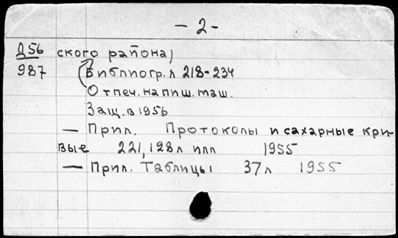 - 2 -
Д56 ского района)
987 (Библиогр. л 218-234
Отпеч. на пиш. маш.
Защ. в 1956
- Прил. Протоколы и сахарные кри-
вые 221, 128 л илл 1955
- Прил. Таблицы 37 л 1955